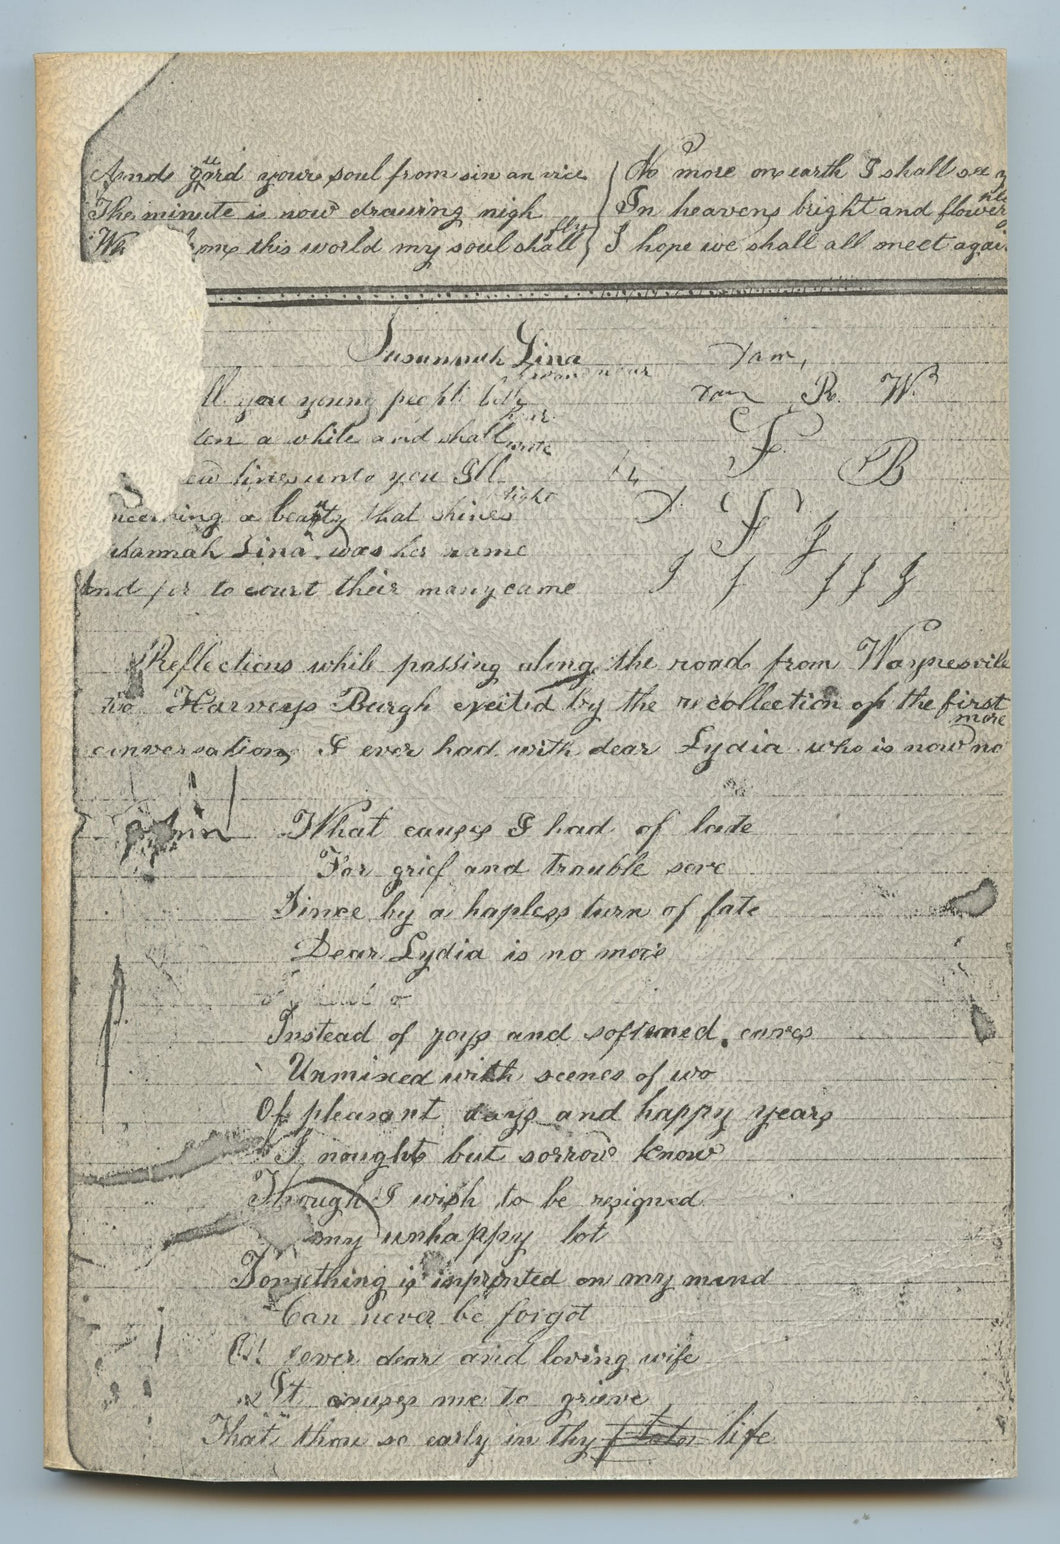 And guard your soul from sin an vice
The minute is now drawing nigh
from this world my soul shall fly
No more on earth I shall see
In heavens bright and flowery
I hope we shall all meet again
Susannah Lina
you young people both
a while and shall hear
lines unto you I'll write
a beauty that shines
Susannah Lina was her name
And for to court their many came
R. W.
F
B
F J
J J J J J
Reflections while passing along the road from Waynesville
to Harveys Burgh excited by the recollection of the first
conversation I ever had with dear Lydia who is now no more
What causes I had of late
For grief and trouble sore
Since by a hapless turn of fate
Dear Lydia is no more
Instead of joys and softened cares
Unmixed with scenes of wo
Of pleasant days and happy years
I nought but sorrow know
Though I wish to be resigned
my unhappy lot
Something is imprented on my mind
Can never be forgot
ever dear and loving wife
It causes me to grieve
That thou so early in thy life